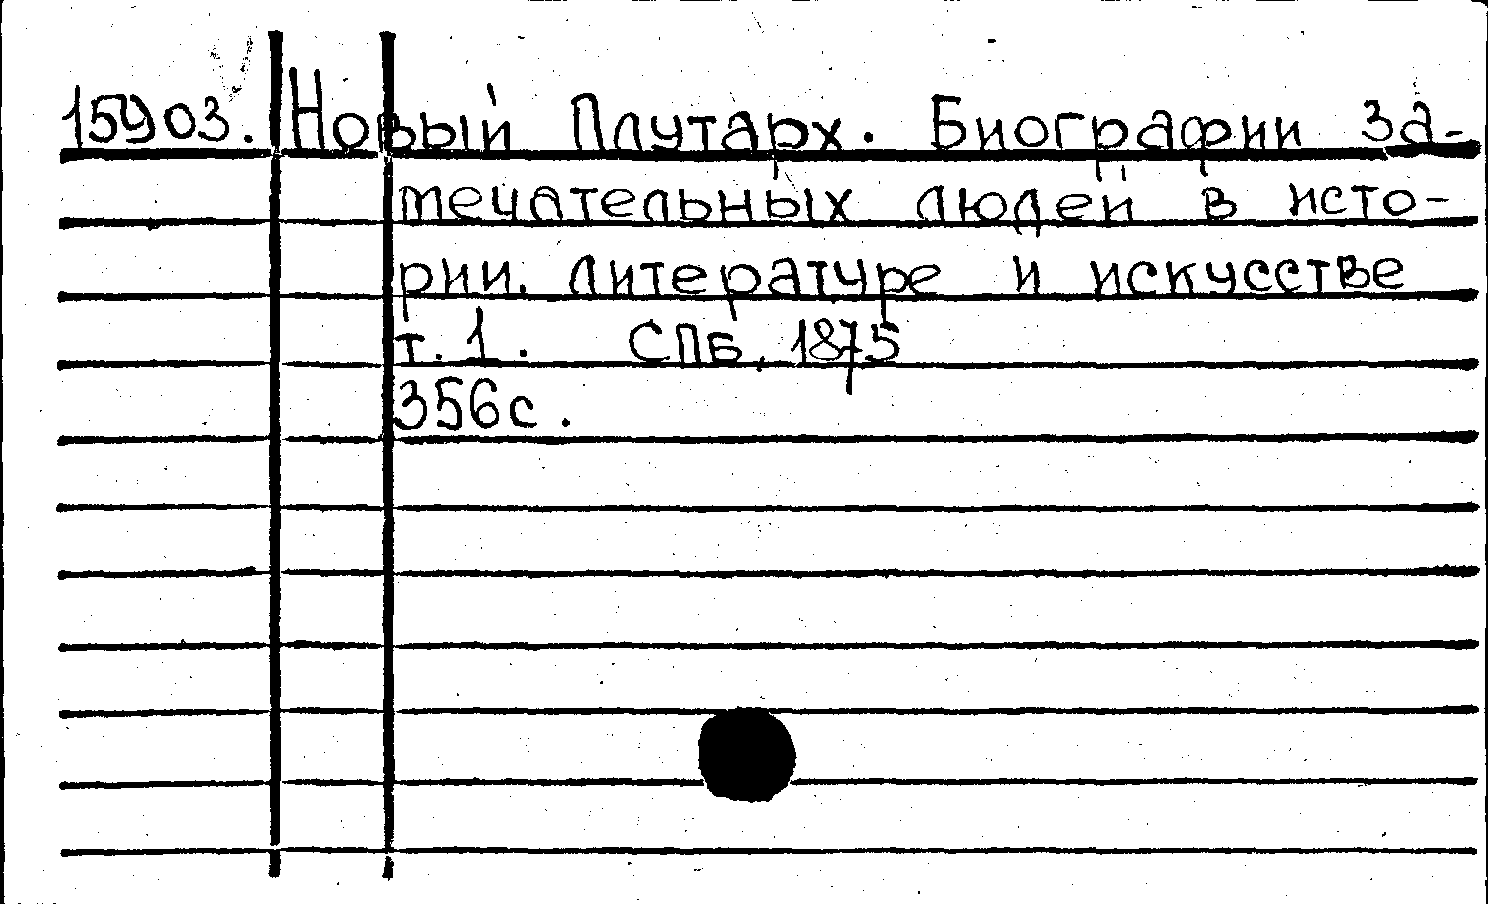 15903. Новый Плутарх. Биографии за-
течательных людей в исто-
рии. литературе и искусстве
т. 1. СПБ. 1875
356с.